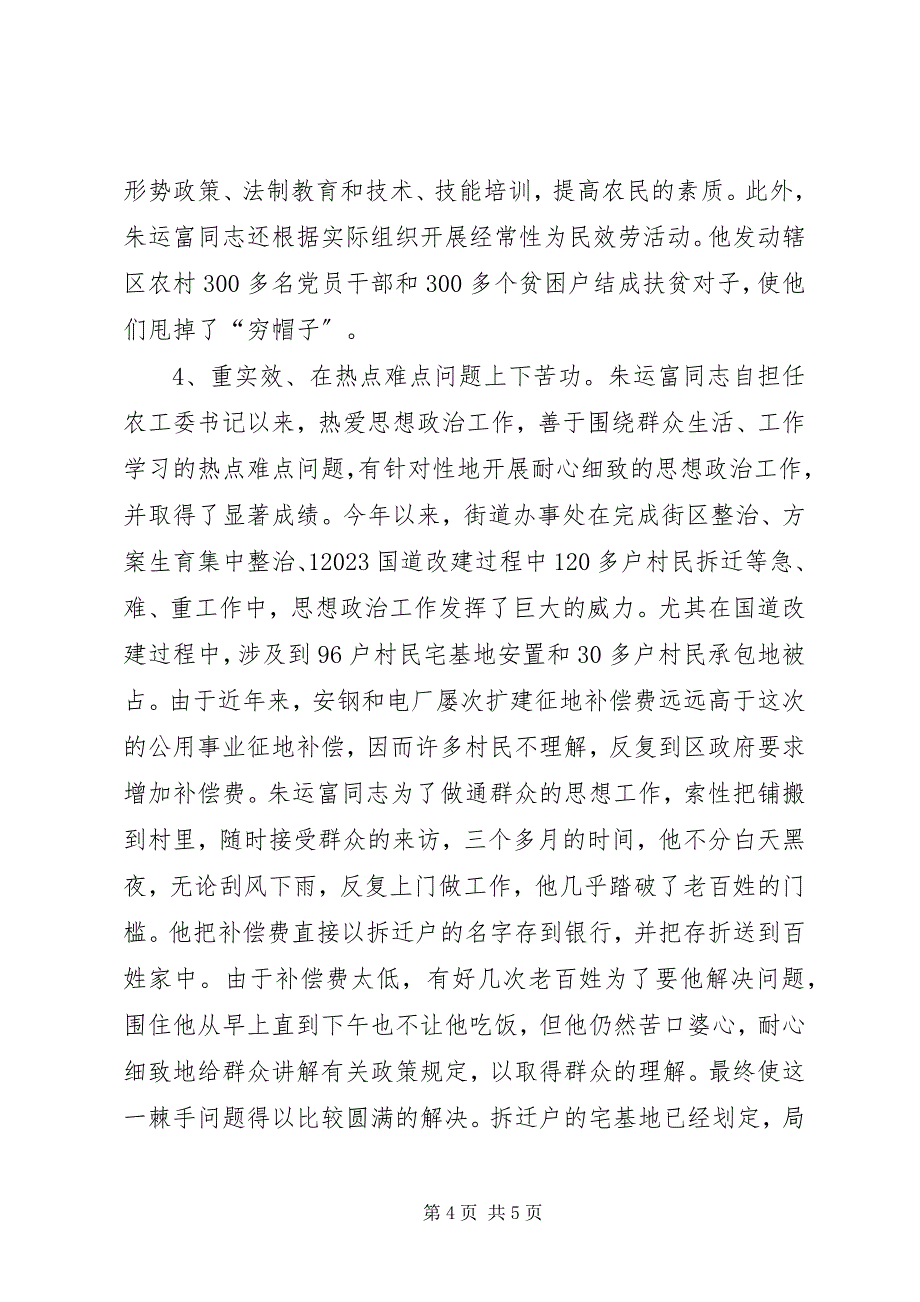 形势政策、法制教育和技术、技能培训，提高农民的素质。此外，
朱运富同志还根据实际组织开展经常性为民效劳活动。他发动辖
区农村 300 多名党员干部和 300 多个贫困户结成扶贫对子，使他
们甩掉了“穷帽子〞。
4、重实效、在热点难点问题上下苦功。朱运富同志自担任
农工委书记以来，热爱思想政治工作，善于围绕群众生活、工作
学习的热点难点问题，有针对性地开展耐心细致的思想政治工作，
并取得了显著成绩。今年以来，街道办事处在完成街区整治、方
案生育集中整治、12023 国道改建过程中 120 多户村民拆迁等急、
难、重工作中，思想政治工作发挥了巨大的威力。尤其在国道改
建过程中，涉及到 96 户村民宅基地安置和 30 多户村民承包地被
占。由于近年来，安钢和电厂屡次扩建征地补偿费远远高于这次
的公用事业征地补偿，因而许多村民不理解，反复到区政府要求
增加补偿费。朱运富同志为了做通群众的思想工作，索性把铺搬
到村里，随时接受群众的来访，三个多月的时间，他不分白天黑
夜，无论刮风下雨，反复上门做工作，他几乎踏破了老百姓的门
槛。他把补偿费直接以拆迁户的名字存到银行，并把存折送到百
姓家中。由于补偿费太低，有好几次老百姓为了要他解决问题，
围住他从早上直到下午也不让他吃饭，但他仍然苦口婆心，耐心
细致地给群众讲解有关政策规定，以取得群众的理解。最终使这
一棘手问题得以比较圆满的解决。拆迁户的宅基地已经划定，局
第 4 页 共 5 页